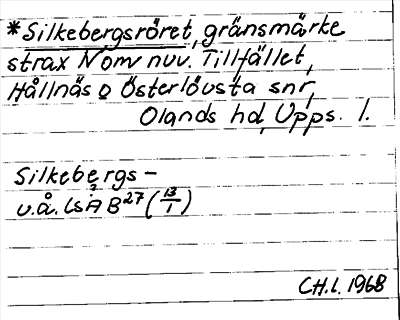 *Silkebergsröret, gränsmärke
strax N om nuv. Tillfället,
Hållnäs o Österlövsta snr,
Olands hd, Upps. l.
Silkebergs -
u.å. LSA B27 (13/1)
CH.L. 1968